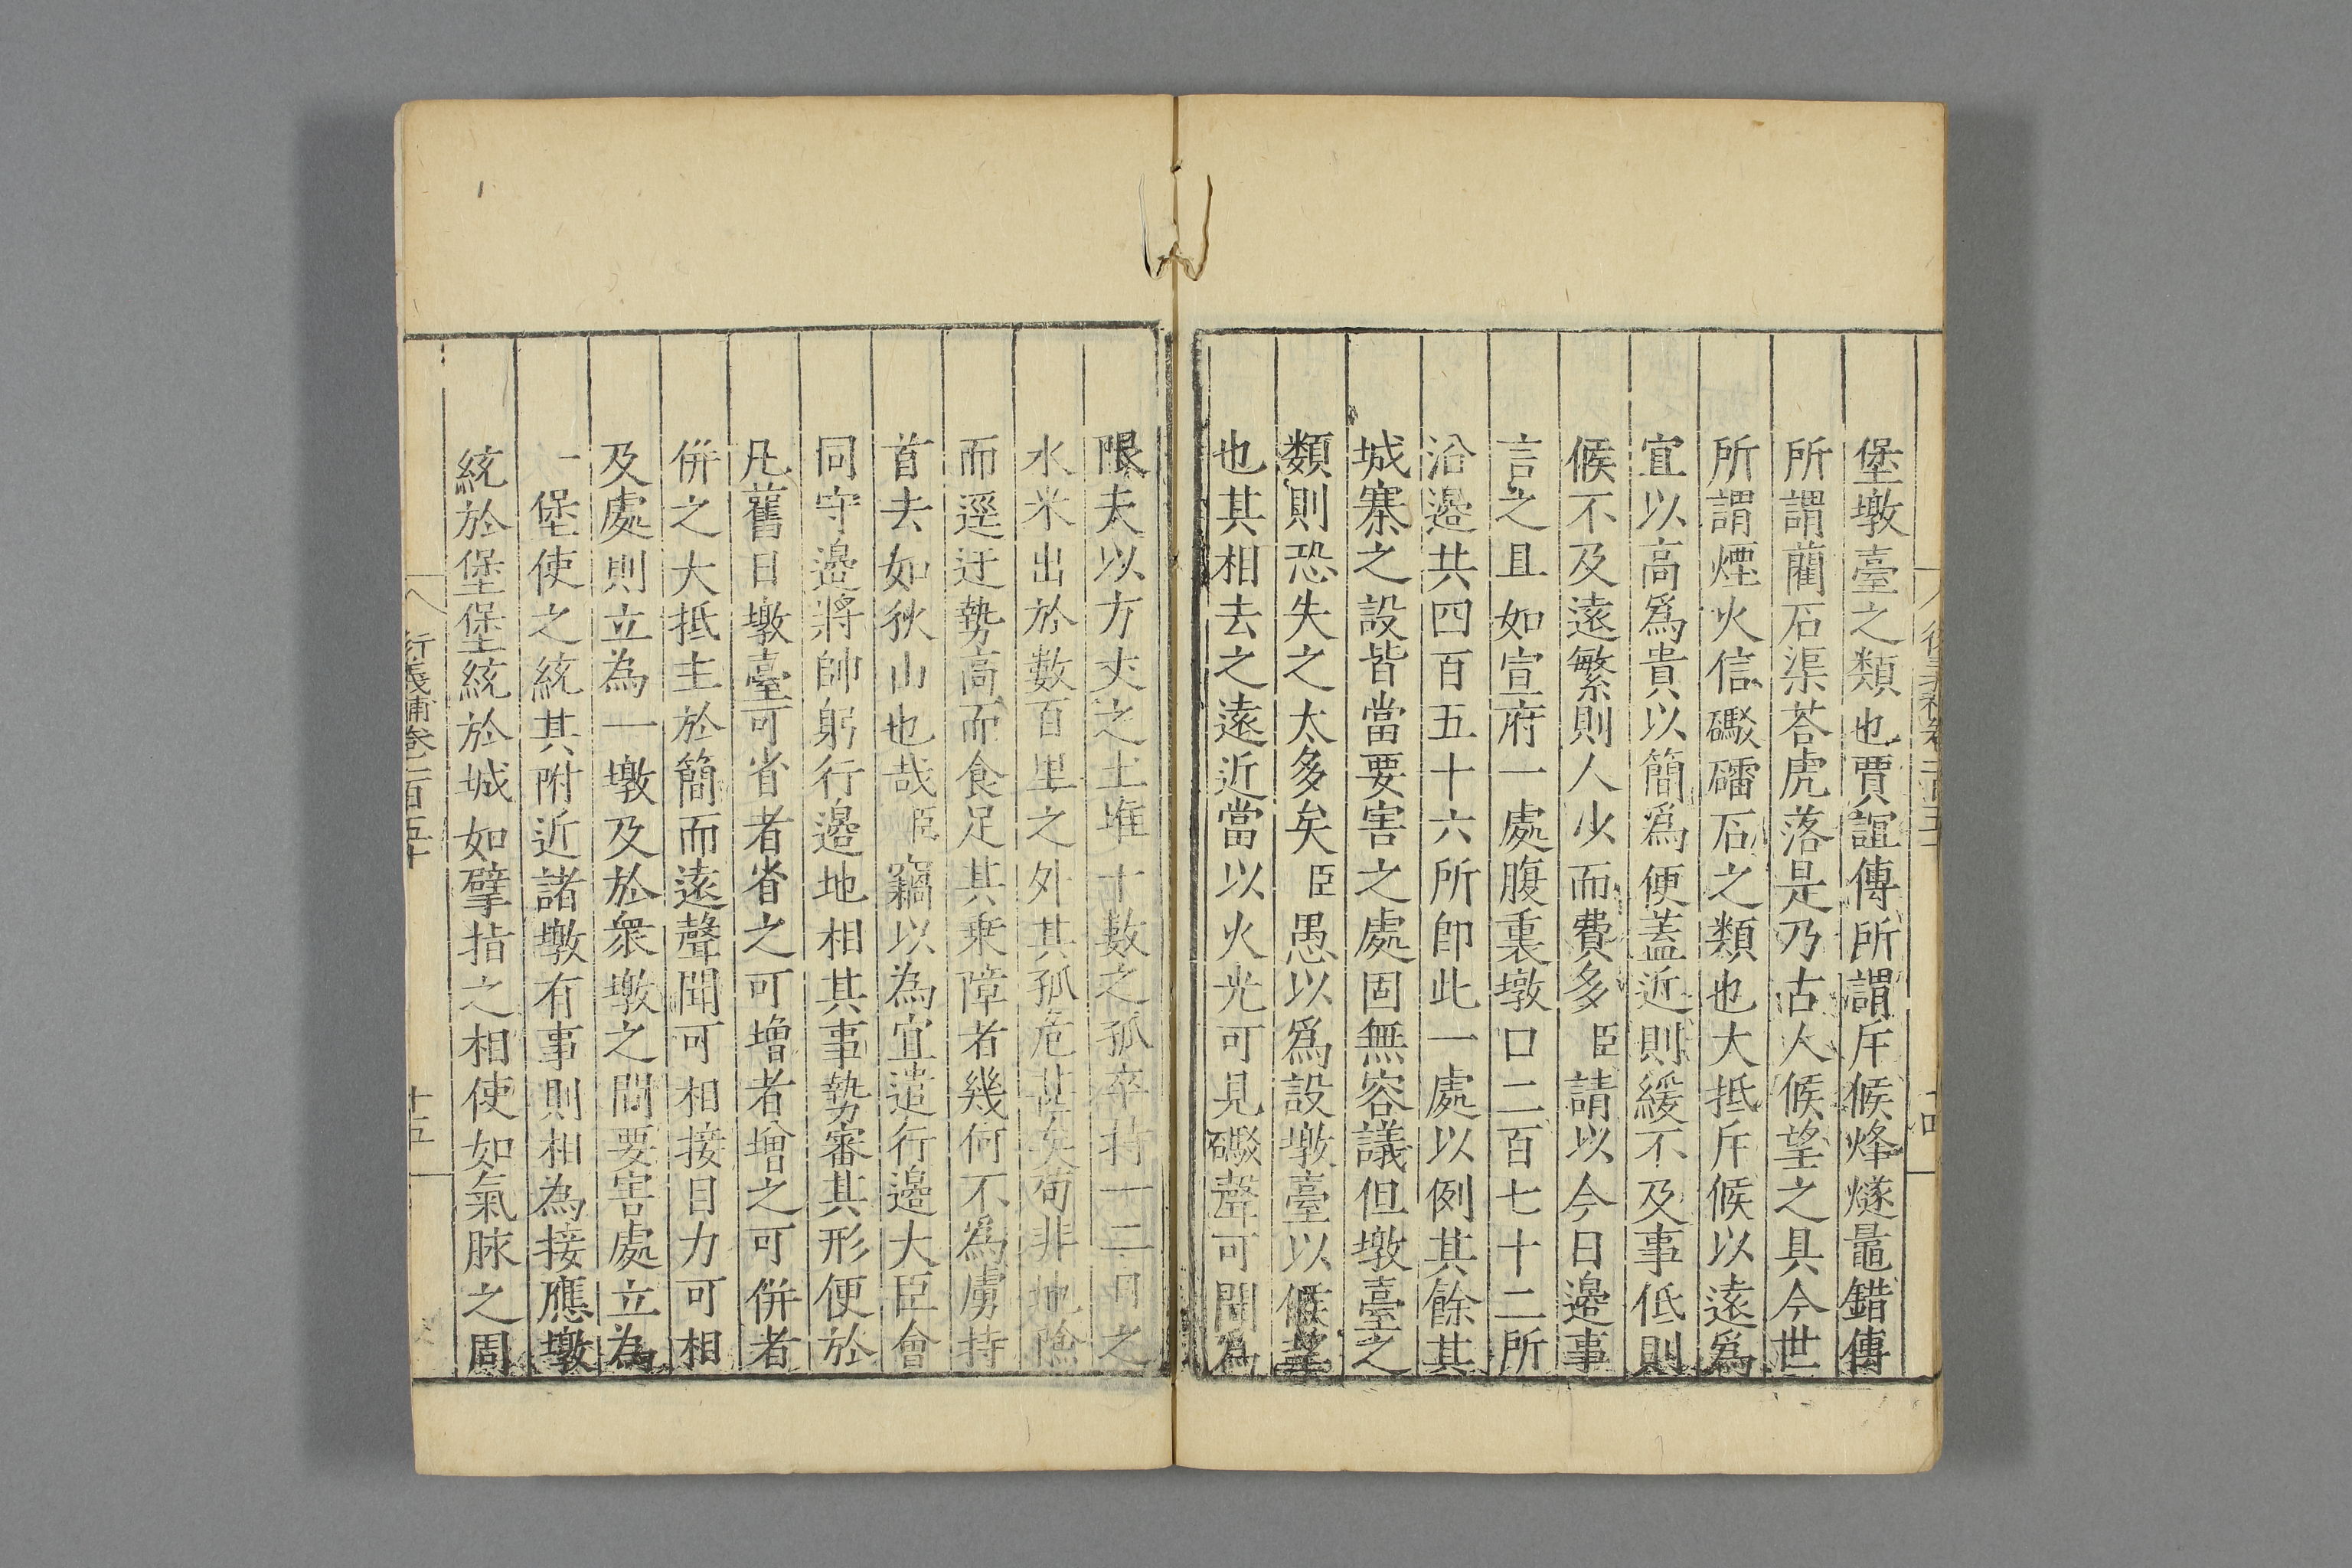 堡墩臺之類也賈誼傳所謂斥候烽燧鼂錯傳
所謂藺石渠荅虎落是乃古人候望之具今世
所謂煙火信礮礌石之類也大抵斥候以遠爲
宜以高爲貴以簡爲便蓋近則緩不及事低則
候不及遠繁則人少而費多臣請以今日邊事
言之且如宣府一處腹裏墩口二百七十二所
沿邊共四百五十六所即此一處以例其餘其
城寨之設皆當要害之處固無容議但墩臺之
類則恐失之太多矣臣愚以爲設墩臺以候望
也其相去之遠近當以火光可見礮聲可聞爲
限夫以方丈之土堆十數之孤卒持一二月之
水米出於數百里之外其孤危甚矣苟非地險
而逕迂勢高而食足其乗障者幾何不為虜持
首去如狄山也哉臣竊以為宜遣行邊大臣會
同守邊將帥躬行邊地相其事勢審其形便於
凡舊日墩臺可省者省之可增者增之可併者
併之大抵主於簡而遠聲聞可相接目力可相
及處則立為一墩及於衆墩之間要害處立為
一堡使之統其附近諸墩有事則相為接應墩
統於堡堡統於城如臂指之相使如氣脉之周
行義補卷一百五十
十五